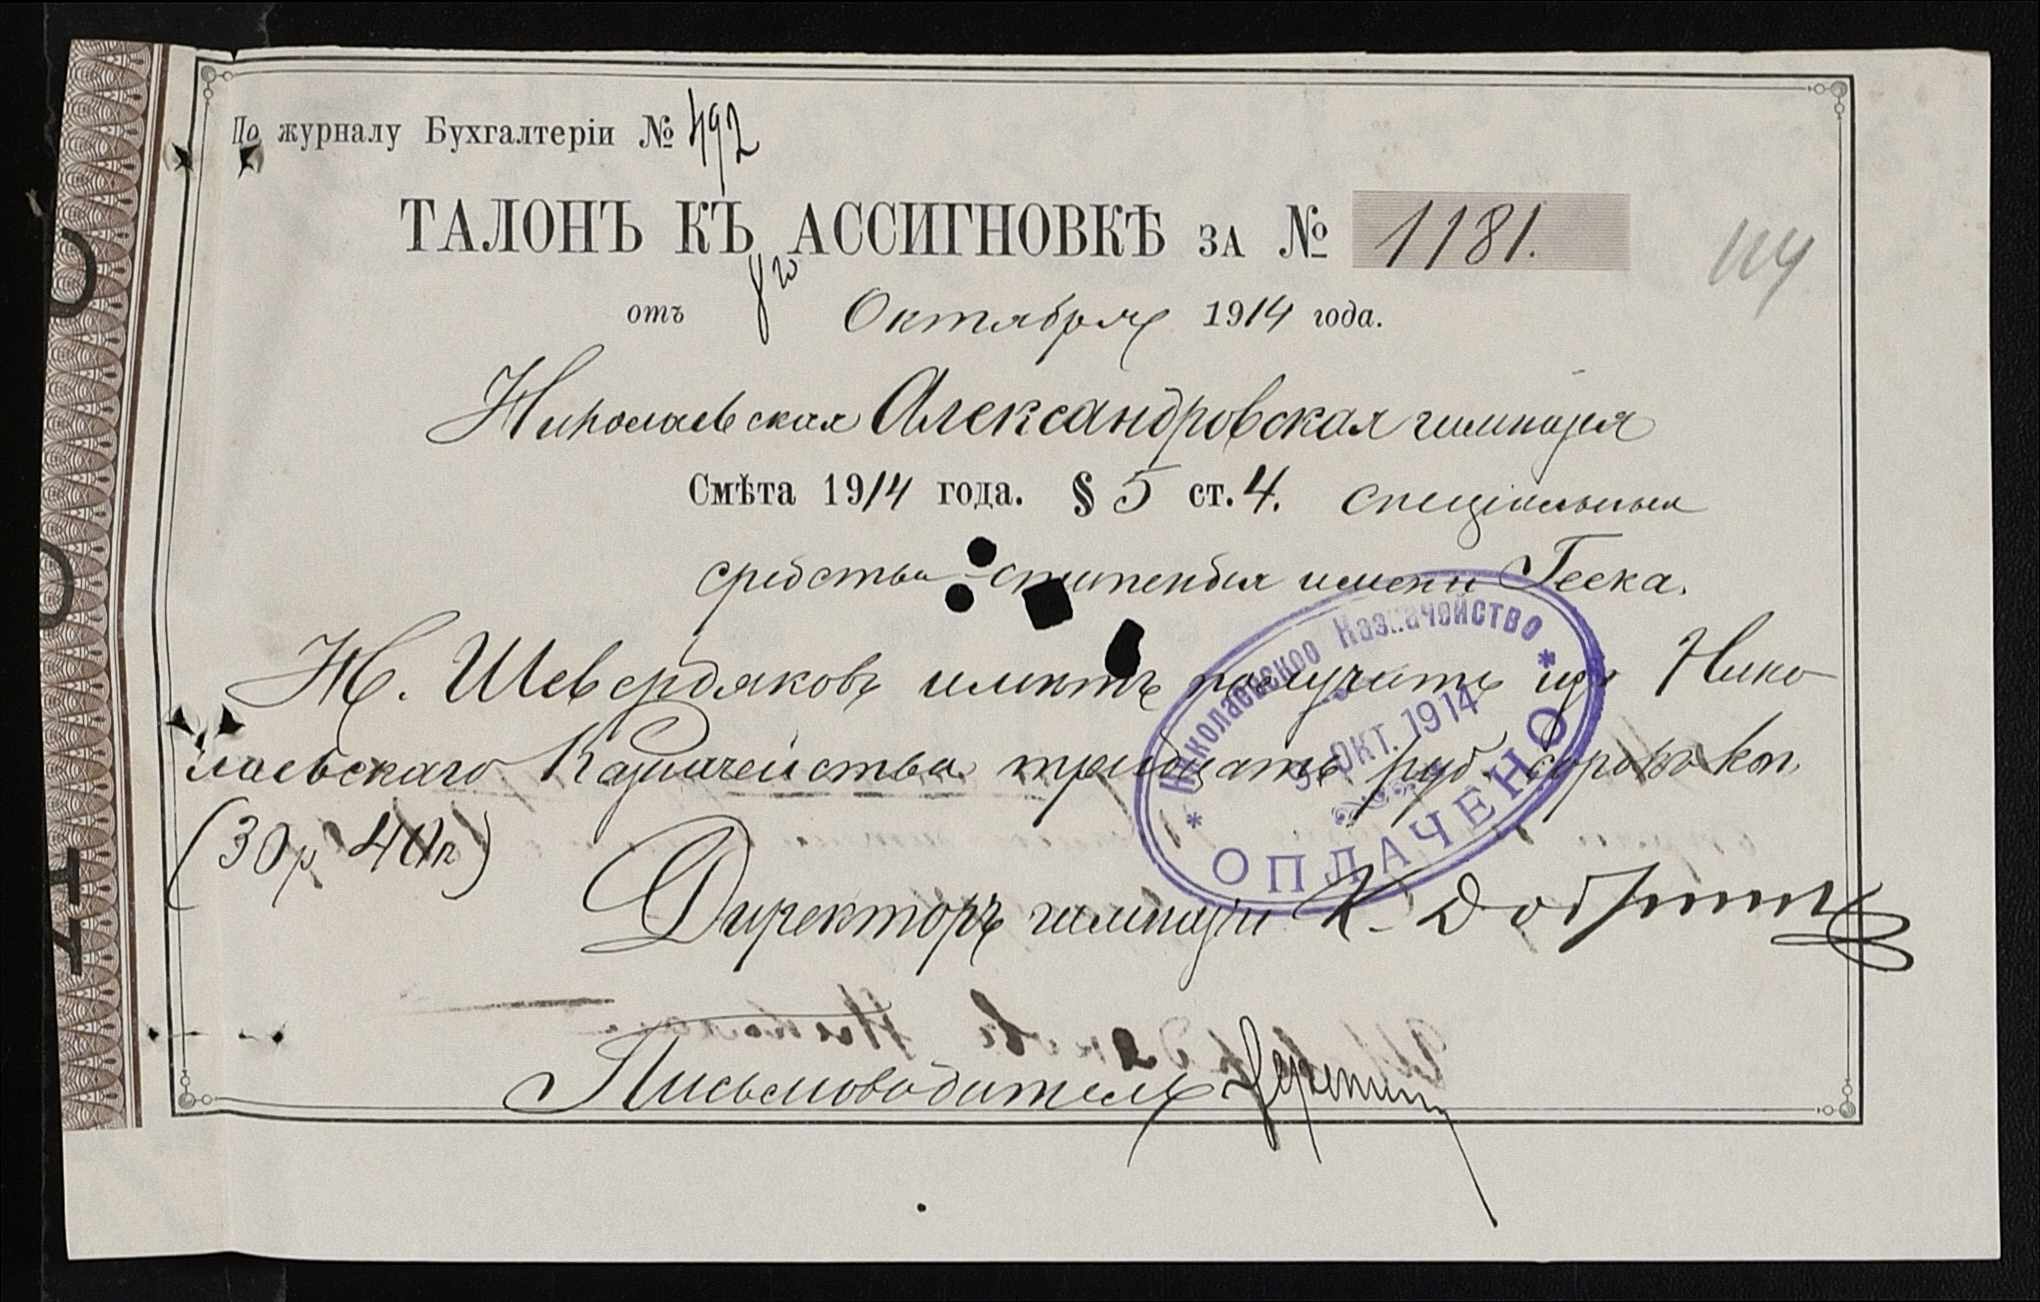 По журналу Бухгалтеріи № 492
ТАЛОНЪ КЪ АССИГНОВКѢ ЗА № 1181.
114
отъ 8го Октября 1914 года.
Николаевская Александровская гимназія
Смѣта 1914 года. § 5 ст. 4. спеціальныя
средства стипендія имени Геека.
Н. Шевердяковъ имѣетъ получить изъ Нико
лаевскаго Казначейства тридцать руб. сорокъ коп.
(30 р 40 к)
Николаевское Казначейство
9 ОКТ. 1914
ОПЛАЧЕНО
Директоръ гимназіи К.
Письмоводитель